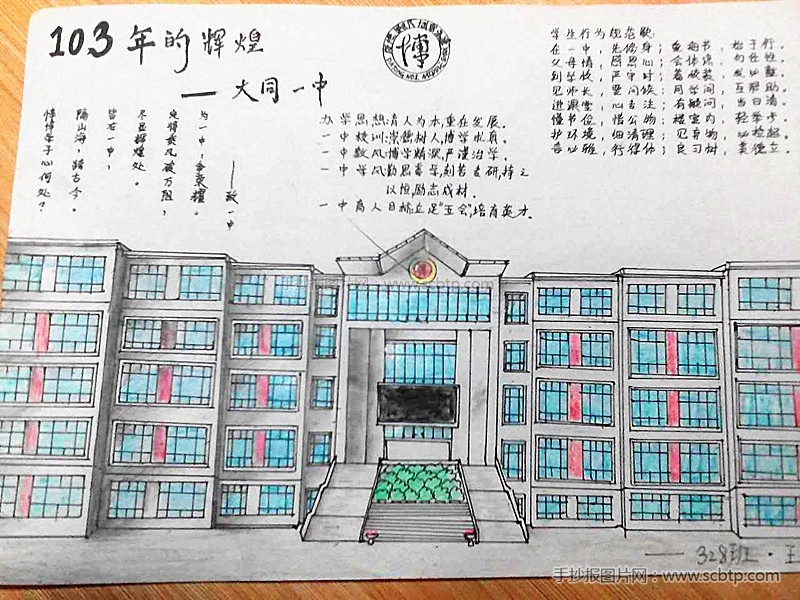 103年的辉煌
——大同一中
博
学生行为规范歌
在一中，先修身；重细节，始于行。
父母情，感恩心；会体谅，勿任性。
到学校，严守时；着校装，
见师长，要问候；同学间，互帮助。
进课堂，心专注；有疑问，当日清。
惜书伍，惜公物；楼室内，轻举步。
护环境，细清理；见弃物，必捡起。
言必雅，行得体；良习树，美德立。
办学思想：人为本，重在发展。
一中校训：崇德树人，博学求真。
一中教风：博学精深，严谨治学。
一中学风：勤思善学，刻苦专研，持之
以恒，励志成材。
一中育人目标：立足“五会”，培育英才。
——致一中
为一中，争荣耀。
定将长风破万阻，
尽显辉煌处。
皆在一中，
隔山海，踏古今。
博博学子心何处？
手抄报图片网：www.scbtp.com
——328班·王
手抄报图片网：www.scbtp.com